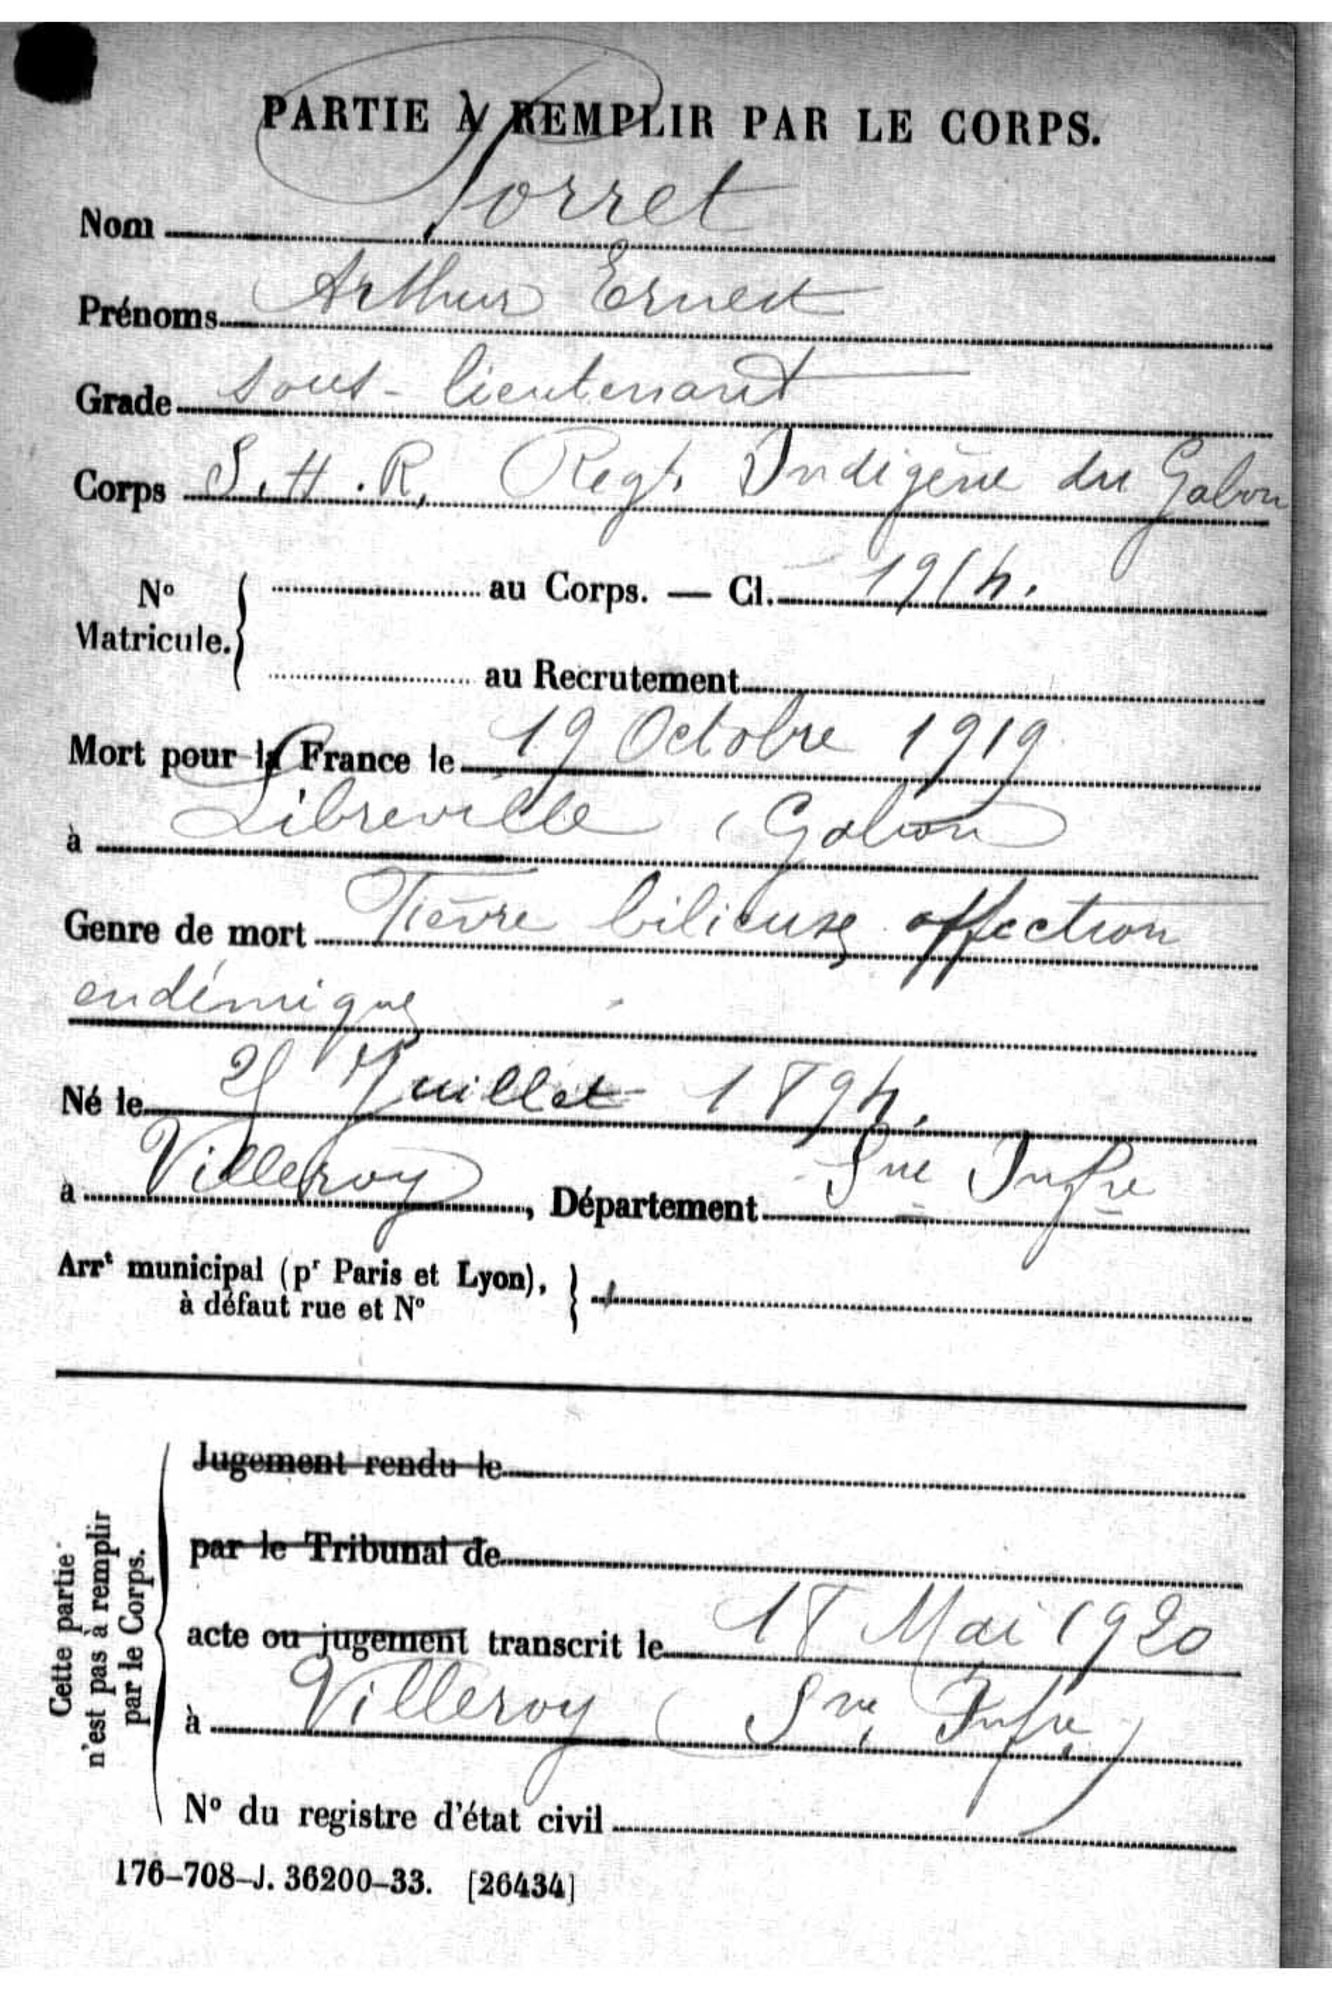 PARTIE À REMPLIR PAR LE CORPS.
Nom Porret
Prénoms Arthur Ernest
Grade sous-lieutenant
Corps S.H.R. Regt Indigène du Gabon
No au Corps. — Cl. 1914.
Matricule.
au Recrutement
Mort pour la France le 19 Octobre 1919
à Libreville (Gabon)
Genre de mort Fièvre bilieuse affection
endémique
Né le Juillet 1894.
à Villeroy, Département Sne Infre
Arrt municipal (pr Paris et Lyon),
à défaut rue et No
Cette partie
n'est pas à remplir
par le Corps.
Jugement rendu le
par le Tribunal de
acte ou jugement transcrit le 18 Mai 1920
à Villeroy (Sne Infre)
No du registre d'état civil
176-708-J. 36200-33. [26434]